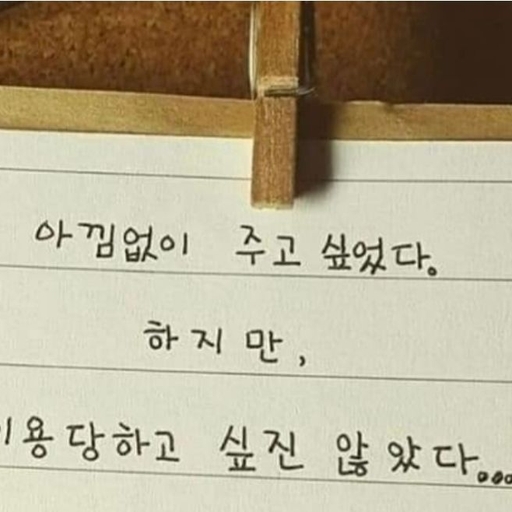 아낌없이 주고 싶었다.
하지만,
이용당하고 싶진 않았다...